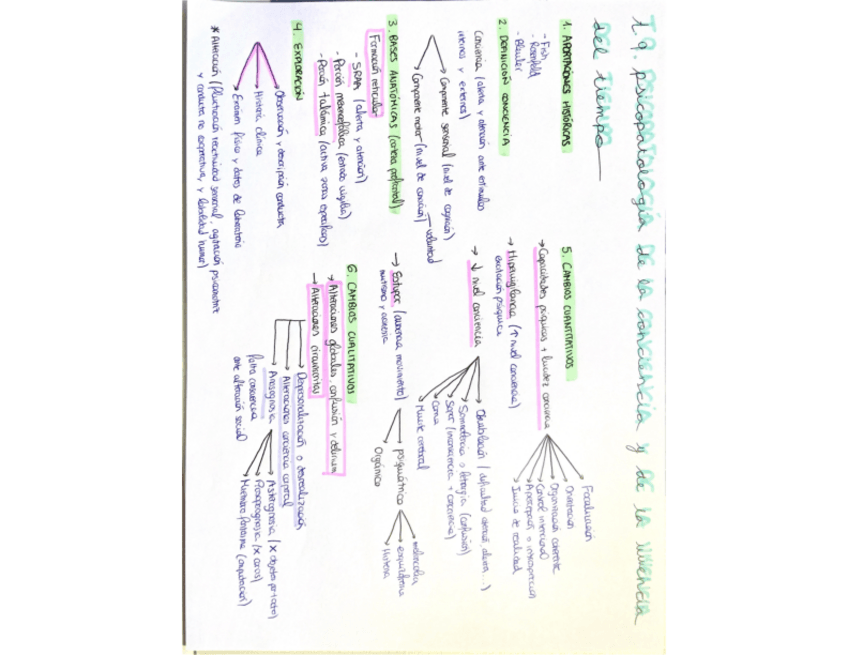 T.9. psicopatología de la conciencia y de la vivencia
del tiempo
1. APORTACIONES HISTÓRICAS
- Fish
- Rosenfeld
- Bleuler
2. DEFINICIÓN CONCIENCIA
Conciencia (alerta y atención ante estímulos
internos y externos)
→ Componente sensorial (nivel de cognición)
→ Componente motor (nivel de conación) → voluntad
3. BASES ANATÓMICAS (corteza prefrontal)
Formación reticular
- SRAA (alerta y atención)
- Porción mesencefálica (estado vigilia)
- Porción talámica (activa zonas específicas)
4. EXPLORACIÓN
→ Observación y descripción conducta
→ Historia clínica
→ Examen físico y datos de laboratorio
* Alteración (fluctuación reactividad sensorial, agitación psicomotriz
y conducta no cooperativa, y labilidad humor)
5. CAMBIOS CUANTITATIVOS
→ Capacidades psíquicas + lucidez conciencia
Focalización
Orientación
Organización coherente
Control intencional
Apercepción o introspección
Juicio de realidad
→ Hipervigilancia (↑ nivel conciencia)
excitación psíquica
→ ↓ nivel conciencia
→ Obnubilación (dificultad atención, alarma...)
→ Somnolencia o letargia (confusión)
→ Sopor (inconsciencia + conciencia)
→ Coma
→ Muerte cerebral
→ Estupor (ausencia movimiento)
mutismo y acinesia
→ psiquiátrico
→ melancolía
→ esquizofrenia
→ Histeria
→ Orgánico
6. CAMBIOS CUALITATIVOS
→ Alteraciones globales confusión y delirium
→ Alteraciones circunscritas
→ Despersonalización o desrealización
→ Alteraciones conciencia corporal
→ Anosognosia
falta conciencia
ante alteración social
→ Astereognosia (x objetos por tacto)
→ Prosopagnosia (x caras)
→ Miembro fantasma (amputación)